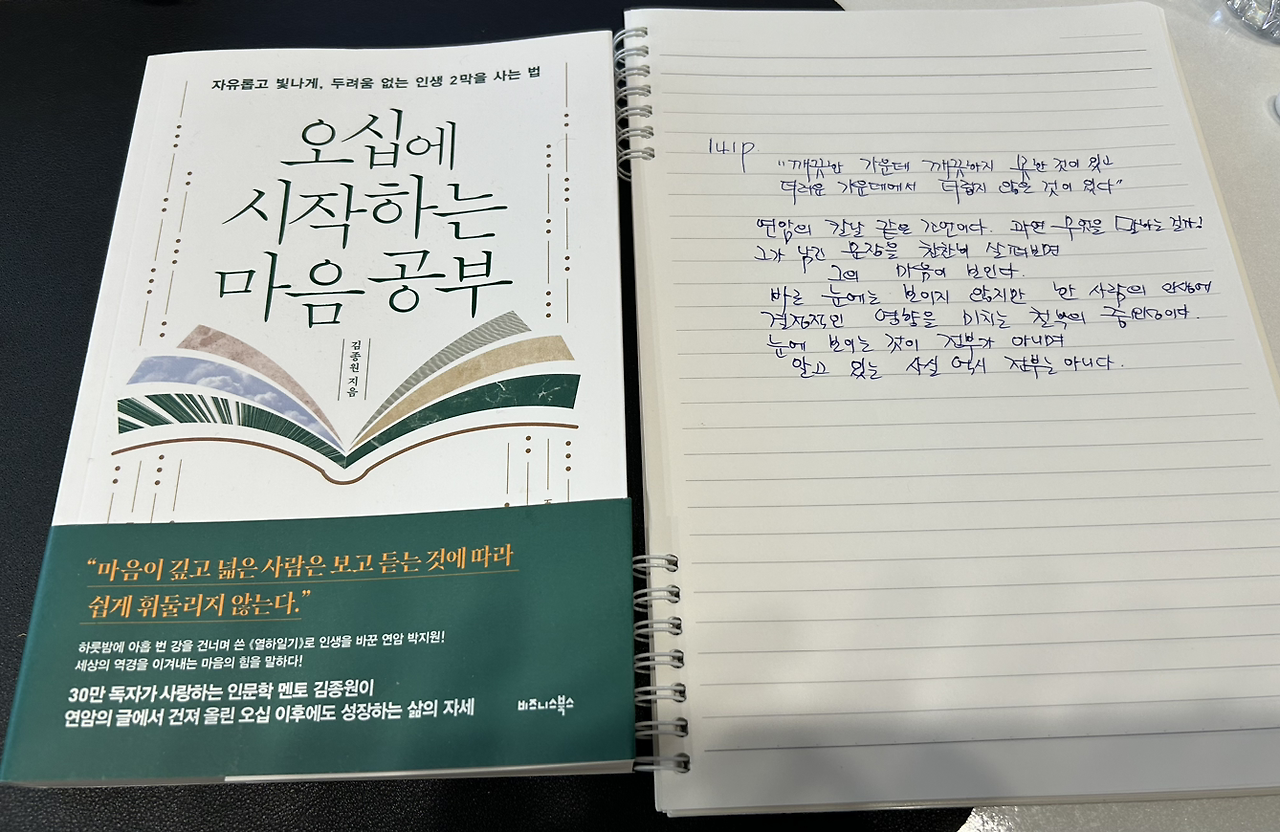 자유롭고 빛나게, 두려움 없는 인생 2막을 사는 법
오십에
시작하는
마음 공부
김종원 지음
“마음이 깊고 넓은 사람은 보고 듣는 것에 따라
쉽게 휘둘리지 않는다.”
하룻밤에 아홉 번 강을 건너며 쓴 《열하일기》로 인생을 바꾼 연암 박지원!
세상의 역경을 이겨내는 마음의 힘을 말하다!
30만 독자가 사랑하는 인문학 멘토 김종원이
연암의 글에서 건져 올린 오십 이후에도 성장하는 삶의 자세
비즈니스북스
141p.
“깨끗한 가운데 깨끗하지 못한 것이 있고
더러운 가운데에서 더럽지 않은 것이 있다”
연암의 칼날 같은 조언이다. 과연 무엇을
그가 남긴 문장을 찬찬히 살펴보면
그의 마음이 보인다.
바로 눈에는 보이지 않지만 한 사람의 인생에
결정적인 영향을 미치는 철학의 중요성이다.
눈에 보이는 것이 전부가 아니며
알고 있는 사실 역시 전부는 아니다.